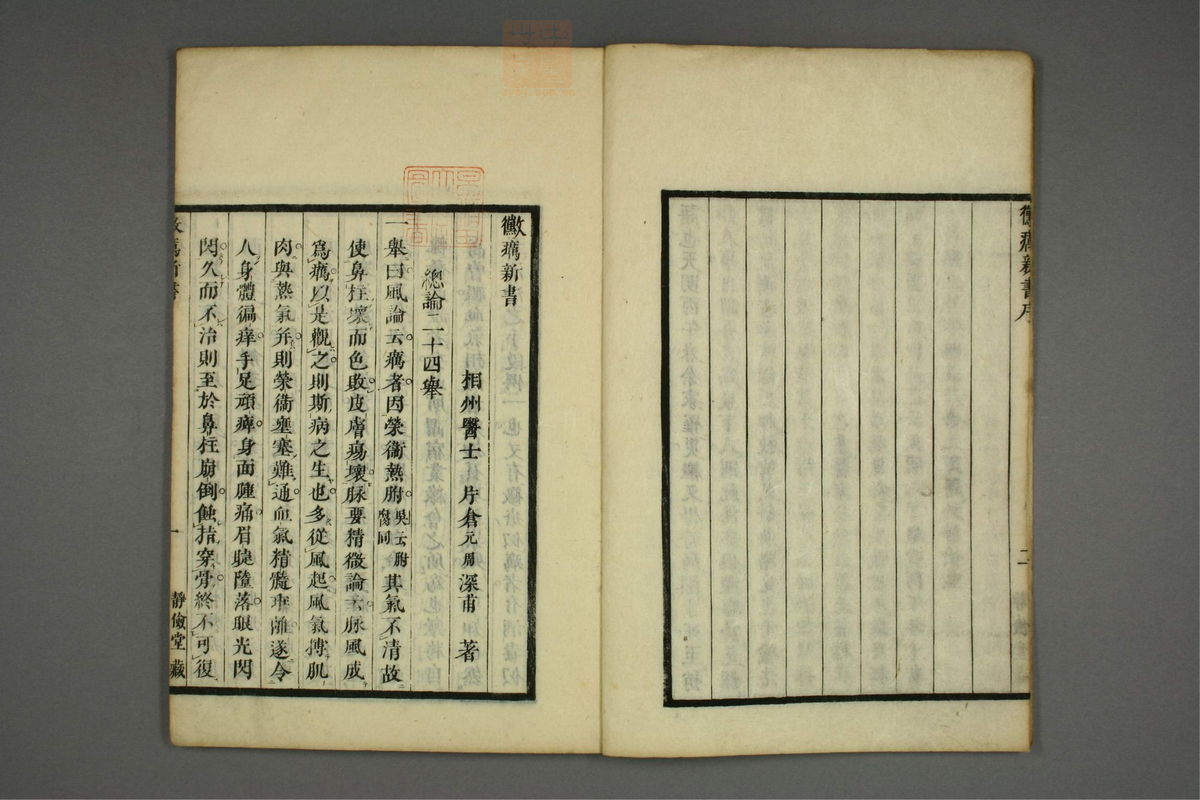 黴癘新書序
二
黴癘新書
相州醫士 片倉元周深甫 著
總論二十四舉
一舉曰風論云癘者因榮衞熱胕吳云胕腐同其氣不清故
使鼻柱壞而色敗皮膚瘍壞脉要精微論云脉風成
爲癘以是觀之則斯病之生也多從風起風氣搏肌
肉與熱氣并則榮衞壅塞難通血氣精髓乖離遂令
人身體徧痒手足頑痺身面腫痛眉睫墮落眼光閃
閃久而不治則至於鼻柱崩倒蝕指穿骨終不可復
黴癘新書
一
靜儉堂藏